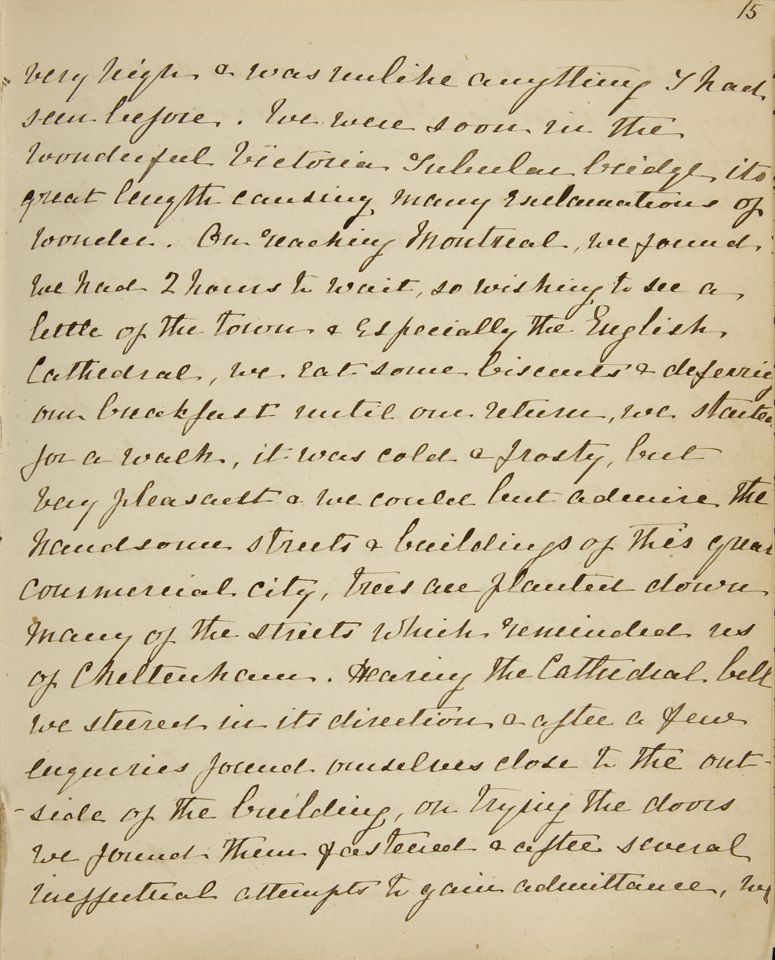 15
very high & was unlike anything I had
seen before. We were soon in the
wonderful Victoria Tubular bridge, its
great length causing many exclamations of
wonder. On reaching Montreal, we found
we had 2 hours to wait, so wishing to see a
little of the town & especially the English
Cathedral, we eat some biscuits & deferring
our breakfast until our return, we started
for a walk, it was cold & frosty, but
very pleasant & we could but admire the
handsome streets & buildings of this great
commercial city, trees are planted down
many of the streets which reminded us
of Cheltenham. Hearing the Cathedral bell
we steered in its direction & after a few
enquiries found ourselves close to the out-
-side of the building, on trying the doors
we found them fastened & after several
ineffectual attempts to gain admittance, we